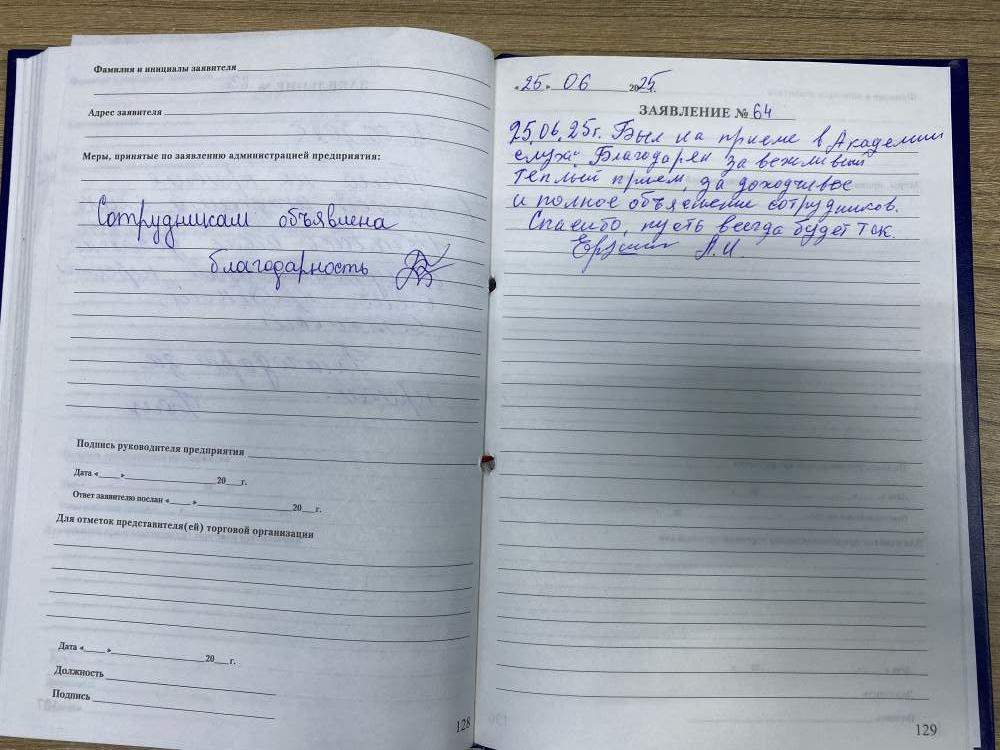 Фамилия и инициалы заявителя
Адрес заявителя
Меры, принятые по заявлению администрацией предприятия:
Сотрудникам объявлена
благодарность
Подпись руководителя предприятия
Дата «____» 20___г.
Ответ заявителю послан «____» 20___г.
Для отметок представителя(ей) торговой организации
Дата «____» 20___г.
Должность
Подпись
128
«25» 06 2025г.
ЗАЯВЛЕНИЕ № 64
25.06.25г. Был на приеме в Академии
слуха. Благодарен за вежливый
теплый прием, за доходчивое
и полное объяснение сотрудников.
Спасибо, пусть всегда будет так.
А.И.
129